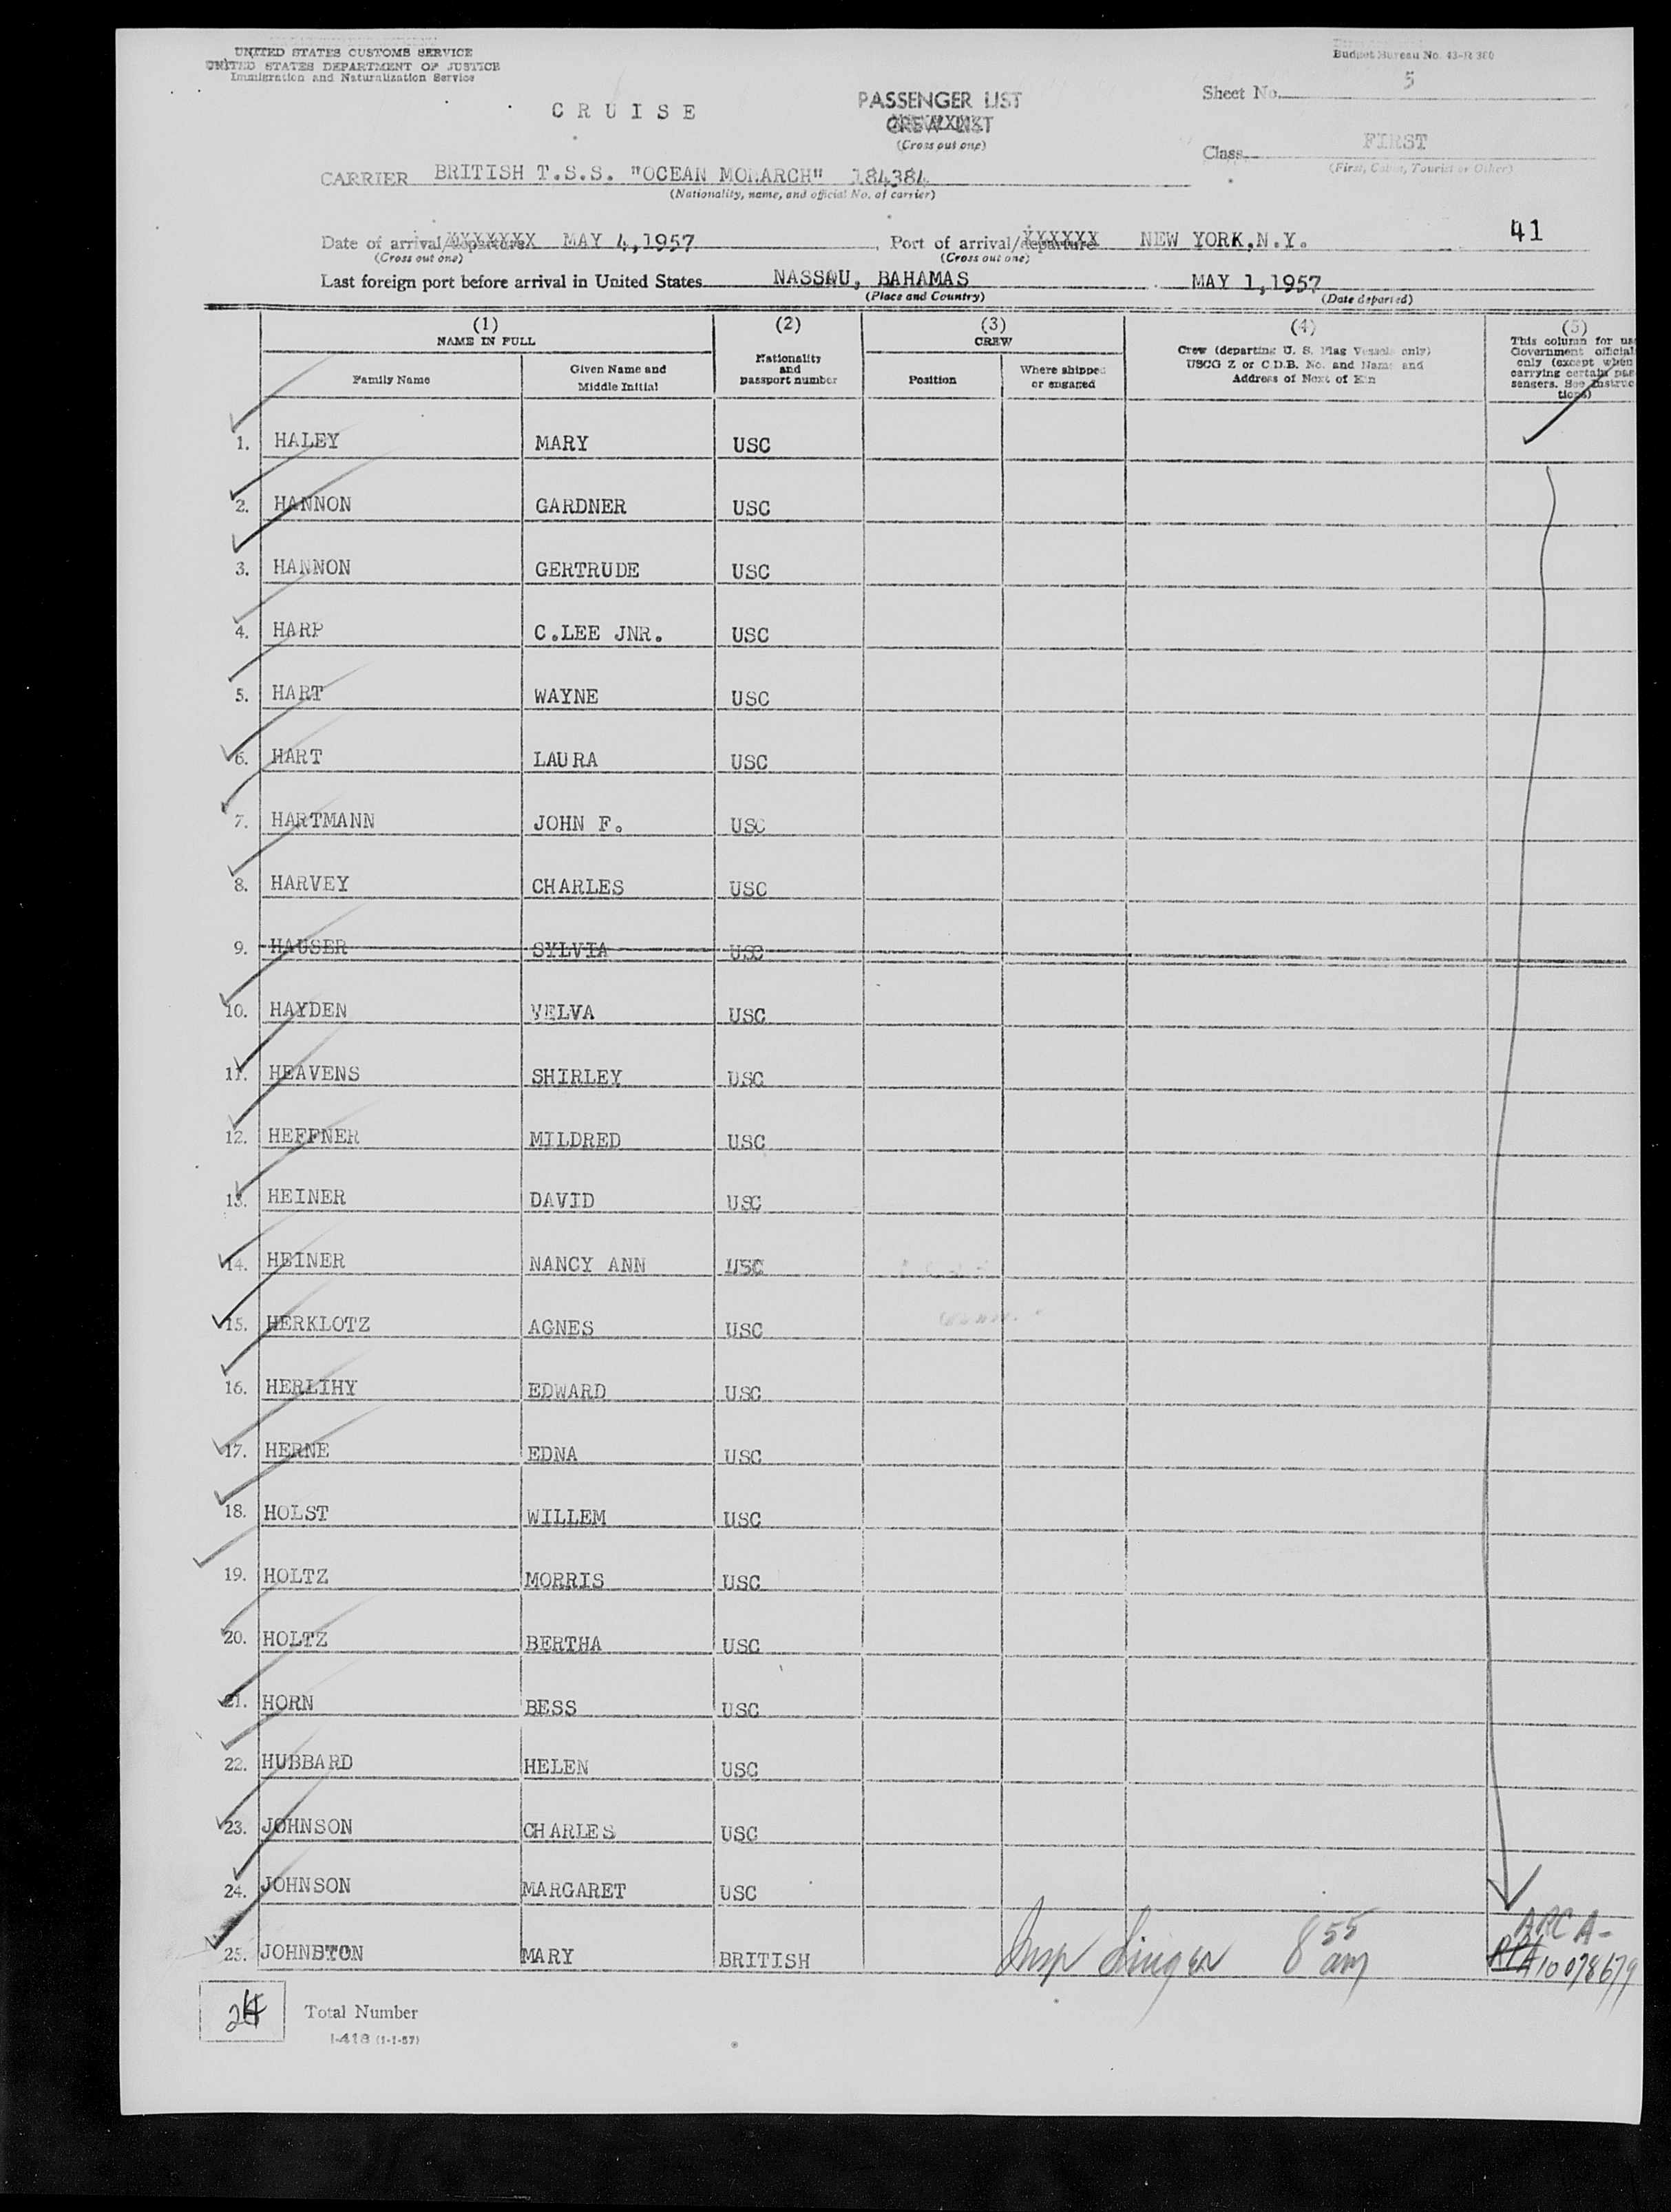 UNITED STATES CUSTOMS SERVICE
UNITED STATES DEPARTMENT OF JUSTICE
Immigration and Naturalization Service
Budget Bureau No. 43-R 360
Sheet No. 5
CRUISE
PASSENGER LIST
CREW LIST
(Cross out one)
Class FIRST
(First, Cabin, Tourist or Other)
CARRIER BRITISH T.S.S. "OCEAN MONARCH" 184384
(Nationality, name, and official No. of carrier)
Date of arrival/departure XXXXXXX MAY 4,1957, Port of arrival/departure XXXXXX NEW YORK,N.Y. 41
(Cross out one) (Cross out one)
Last foreign port before arrival in United States NASSAU, BAHAMAS MAY 1,1957
(Place and Country) (Date departed)
(1) (2) (3) (4) (5)
NAME IN FULL
Family Name
Given Name and Middle Initial
Nationality and passport number
CREW
Position
Where shipped or engaged
Crew (departing U. S. Flag Vessels only)
USCG Z or C.D.B. No. and Name and
Address of Next of Kin
This column for use
Government official
only (except when
carrying certain pas
sengers. See Instruc
tions)
1. HALEY MARY USC
2. HANNON GARDNER USC
3. HANNON GERTRUDE USC
4. HARP C.LEE JNR. USC
5. HART WAYNE USC
6. HART LAURA USC
7. HARTMANN JOHN F. USC
8. HARVEY CHARLES USC
9. HAUSER SYLVIA USC
10. HAYDEN VELVA USC
11. HEAVENS SHIRLEY USC
12. HEFFNER MILDRED USC
13. HEINER DAVID USC
14. HEINER NANCY ANN USC
15. HERKLOTZ AGNES USC
16. HERLIHY EDWARD USC
17. HERNE EDNA USC
18. HOLST WILLEM USC
19. HOLTZ MORRIS USC
20. HOLTZ BERTHA USC
21. HORN BESS USC
22. HUBBARD HELEN USC
23. JOHNSON CHARLES USC
24. JOHNSON MARGARET USC
25. JOHNSTON MARY BRITISH Insp Singer 8 55 am ARC A-
10 078679
24 Total Number
I-418 (1-1-57)